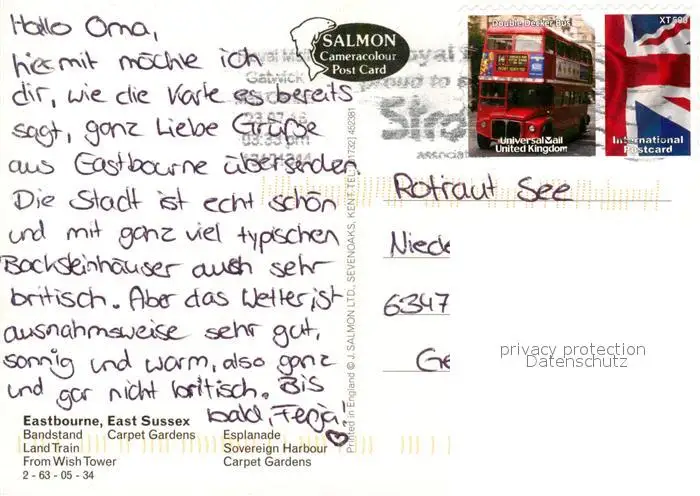 Hallo Oma,
hiermit möchte ich
dir, wie die Karte es bereits
sagt, ganz Liebe Grüße
aus Eastbourne übersenden.
Die Stadt ist echt schön
und mit ganz viel typischen
Backsteinhäuser auch sehr
britisch. Aber das Wetter ist
ausnahmsweise sehr gut,
sonnig und warm, also ganz
und gar nicht britisch. Bis
bald, Fenja!
Eastbourne, East Sussex
Bandstand Carpet Gardens Esplanade
Land Train Sovereign Harbour
From Wish Tower Carpet Gardens
2 - 63 - 05 - 34
SALMON
Cameracolour
Post Card
Printed in England © J. SALMON LTD., SEVENOAKS, KENT. TEL: 1732] 452381
Royal Mail
Gatwick
Double Decker Bus
14
Universal Mail
United Kingdom
XT500
International
Postcard
Rotraut See
Niede
6347
Ge
privacy protection
Datenschutz